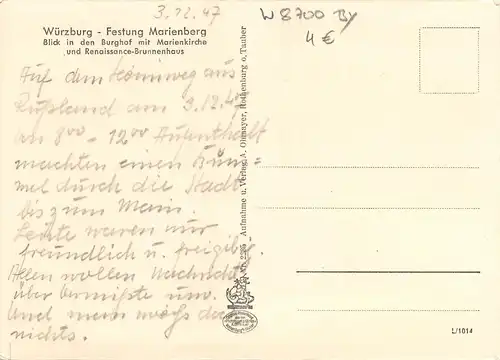 3.12.47
W 8700 By
4 €
Würzburg - Festung Marienberg
Blick in den Burghof mit Marienkirche
und Renaissance-Brunnenhaus
Auf dem Heimweg aus
Rußland am 3.12.47
an 8⁰⁰ – 12⁰⁰ Aufenthalt
machten einen Bum=
mel durch die Stadt
bis zum Main.
Leute waren nur
freundlich u. freigibig.
Allen wollen Nachricht
über Vermißte usw.
Und man weiß da
nichts.
Aufnahme u. Verlag: A. Ohmayer, Rothenburg o. Tauber
L/1014